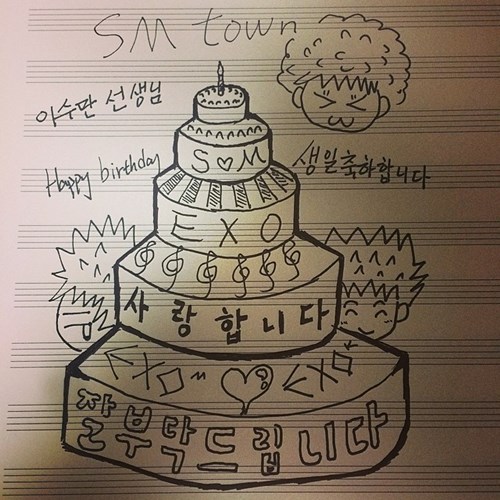 SM town
이수만 선생님
Happy birthday
생일축하합니다
S♡M
EXO
사랑합니다
EXO~♡EXO
잘부탁드립니다